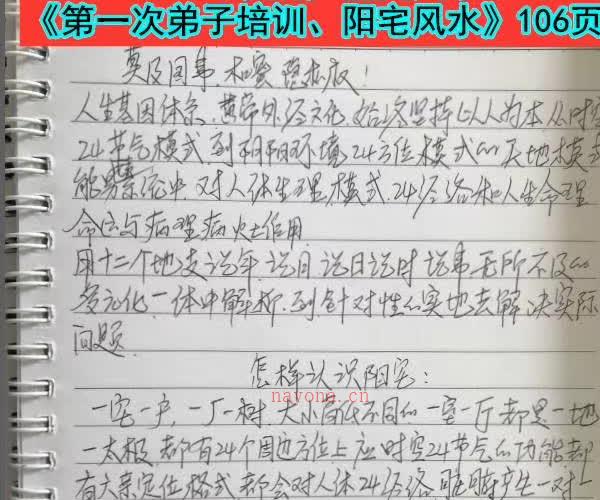 《第一次弟子培训、阳宅风水》106页
人生基因体系,黄帝外经文化,始终坚持以人为本,从时空
24节气模式到阴阳环境24方位模式的天地模式
能量系统中,对人体生理模式,24经络和人生命理
命位与病理病灶作用
用十二个地支说年,说月,说日说时,说事无所不及的
多元化一体中解析,到针对性的实地去解决实际
问题
怎样认识阳宅:
nayona.cn
一宅一户,一厂一树,大小高低不同的一室一厅都是一地
一太极,都有24个周边方位上应时空24节气的功能都
有六亲定位格式都会对人体24经络,产生一对一